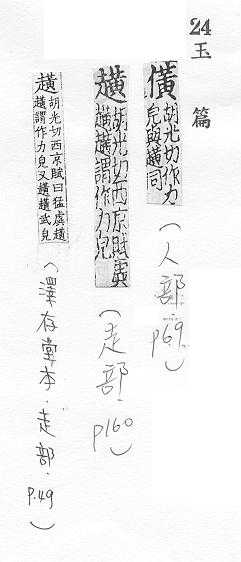 24
玉篇
僙胡光切作力
皃與趪同
(人部.p69.)
趪胡光切西京賦
趪趪謂作力皃
(走部.p160)
趪胡光切西京賦曰猛虡趪
趪謂作力皃又趪趪武皃
(澤存堂本.走部.p.49)